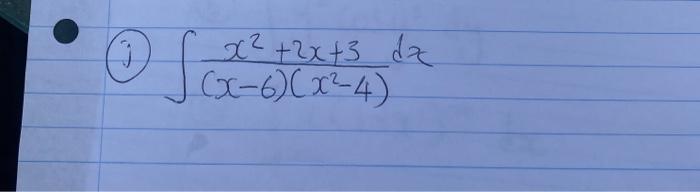 (j) ∫ (x² + 2x + 3) / ((x-6)(x²-4)) dx